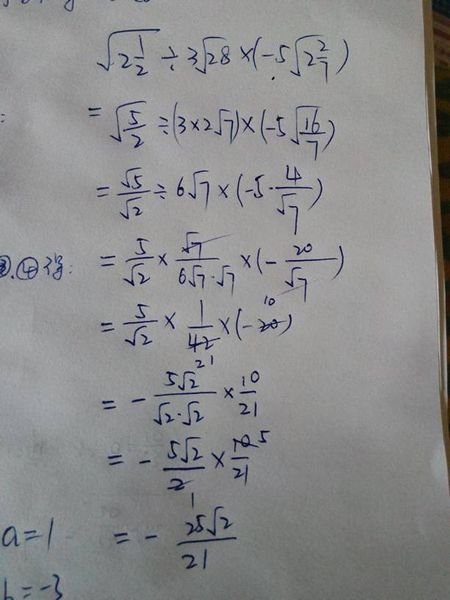 √2 1/2 ÷ 3√28 × (-5√2 2/7)
= √5/2 ÷ (3×2√7) × (-5√16/7)
= √5/√2 ÷ 6√7 × (-5·4/√7)
④得: = 5/√2 × √7/6√7·√7 × (-20/√7)
= 5/√2 × 1/42 21 × (-20 10)
= - 5√2/√2·√2 × 10/21
= - 5√2/2 1 × 10 5/21
a=1 = - 25√2/21
b=-3